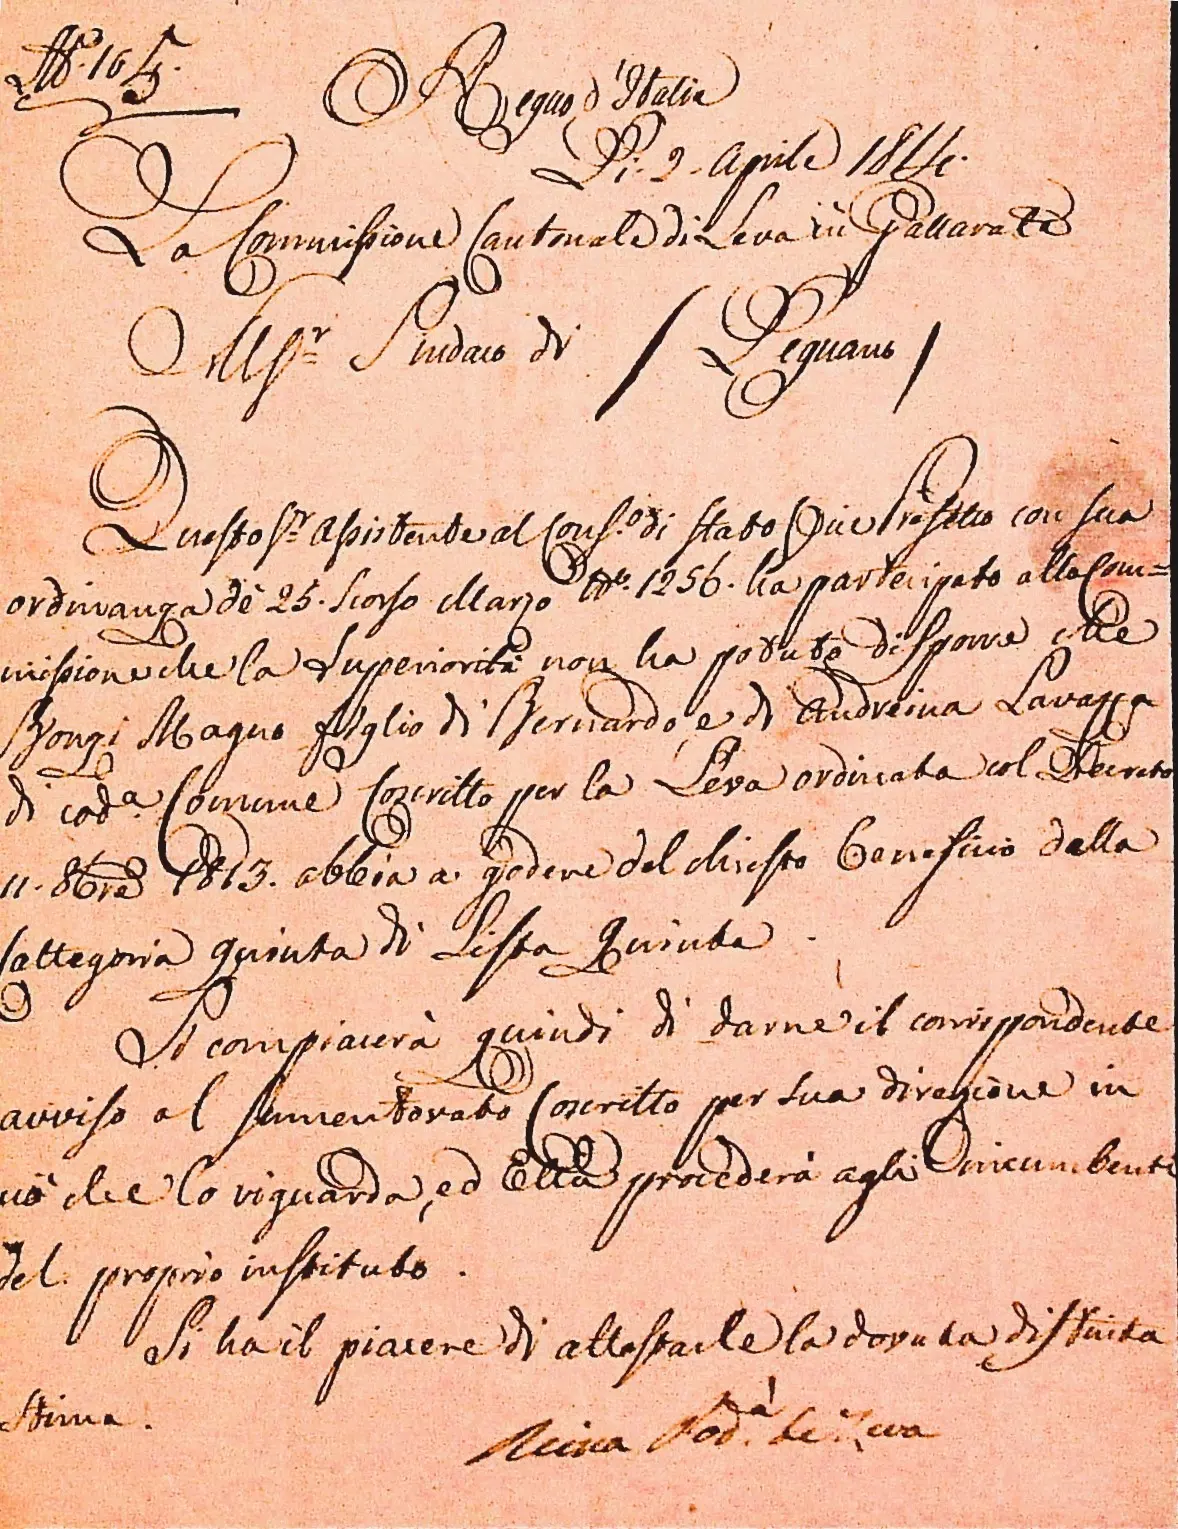 N.° 165.
Regno d'Italia
Di 2. Aprile 1814.
La Commissione Cantonale di Leva in Gallarate
Al Sr. Sindaco di / Legnano /
Questo Sr. Assistente al Cons.° di Stato Vice Prefetto con sua
ordinanza dè 25. scorso Marzo N.° 1256. ha partecipato alla Com=
missione che la Superiorità non ha potuto disporre che
Bongi Magno figlio di Bernardo, e di Andreina Lavazza
di cod.a Commune Coscritto per la Leva ordinata col Decreto
11. 8bre 1813. abbia a godere del chiesto Beneficio della
Cattegoria quinta di Lista Quinta.
Si compiacerà quindi di darne il corrispondente
avviso al sumentovato Coscritto per sua direzione in
ciò che lo riguarda, ed Ella procederà agli incumbenti
del proprio instituto.
Si ha il piacere di attestarle la dovuta distinta
stima.
Leva